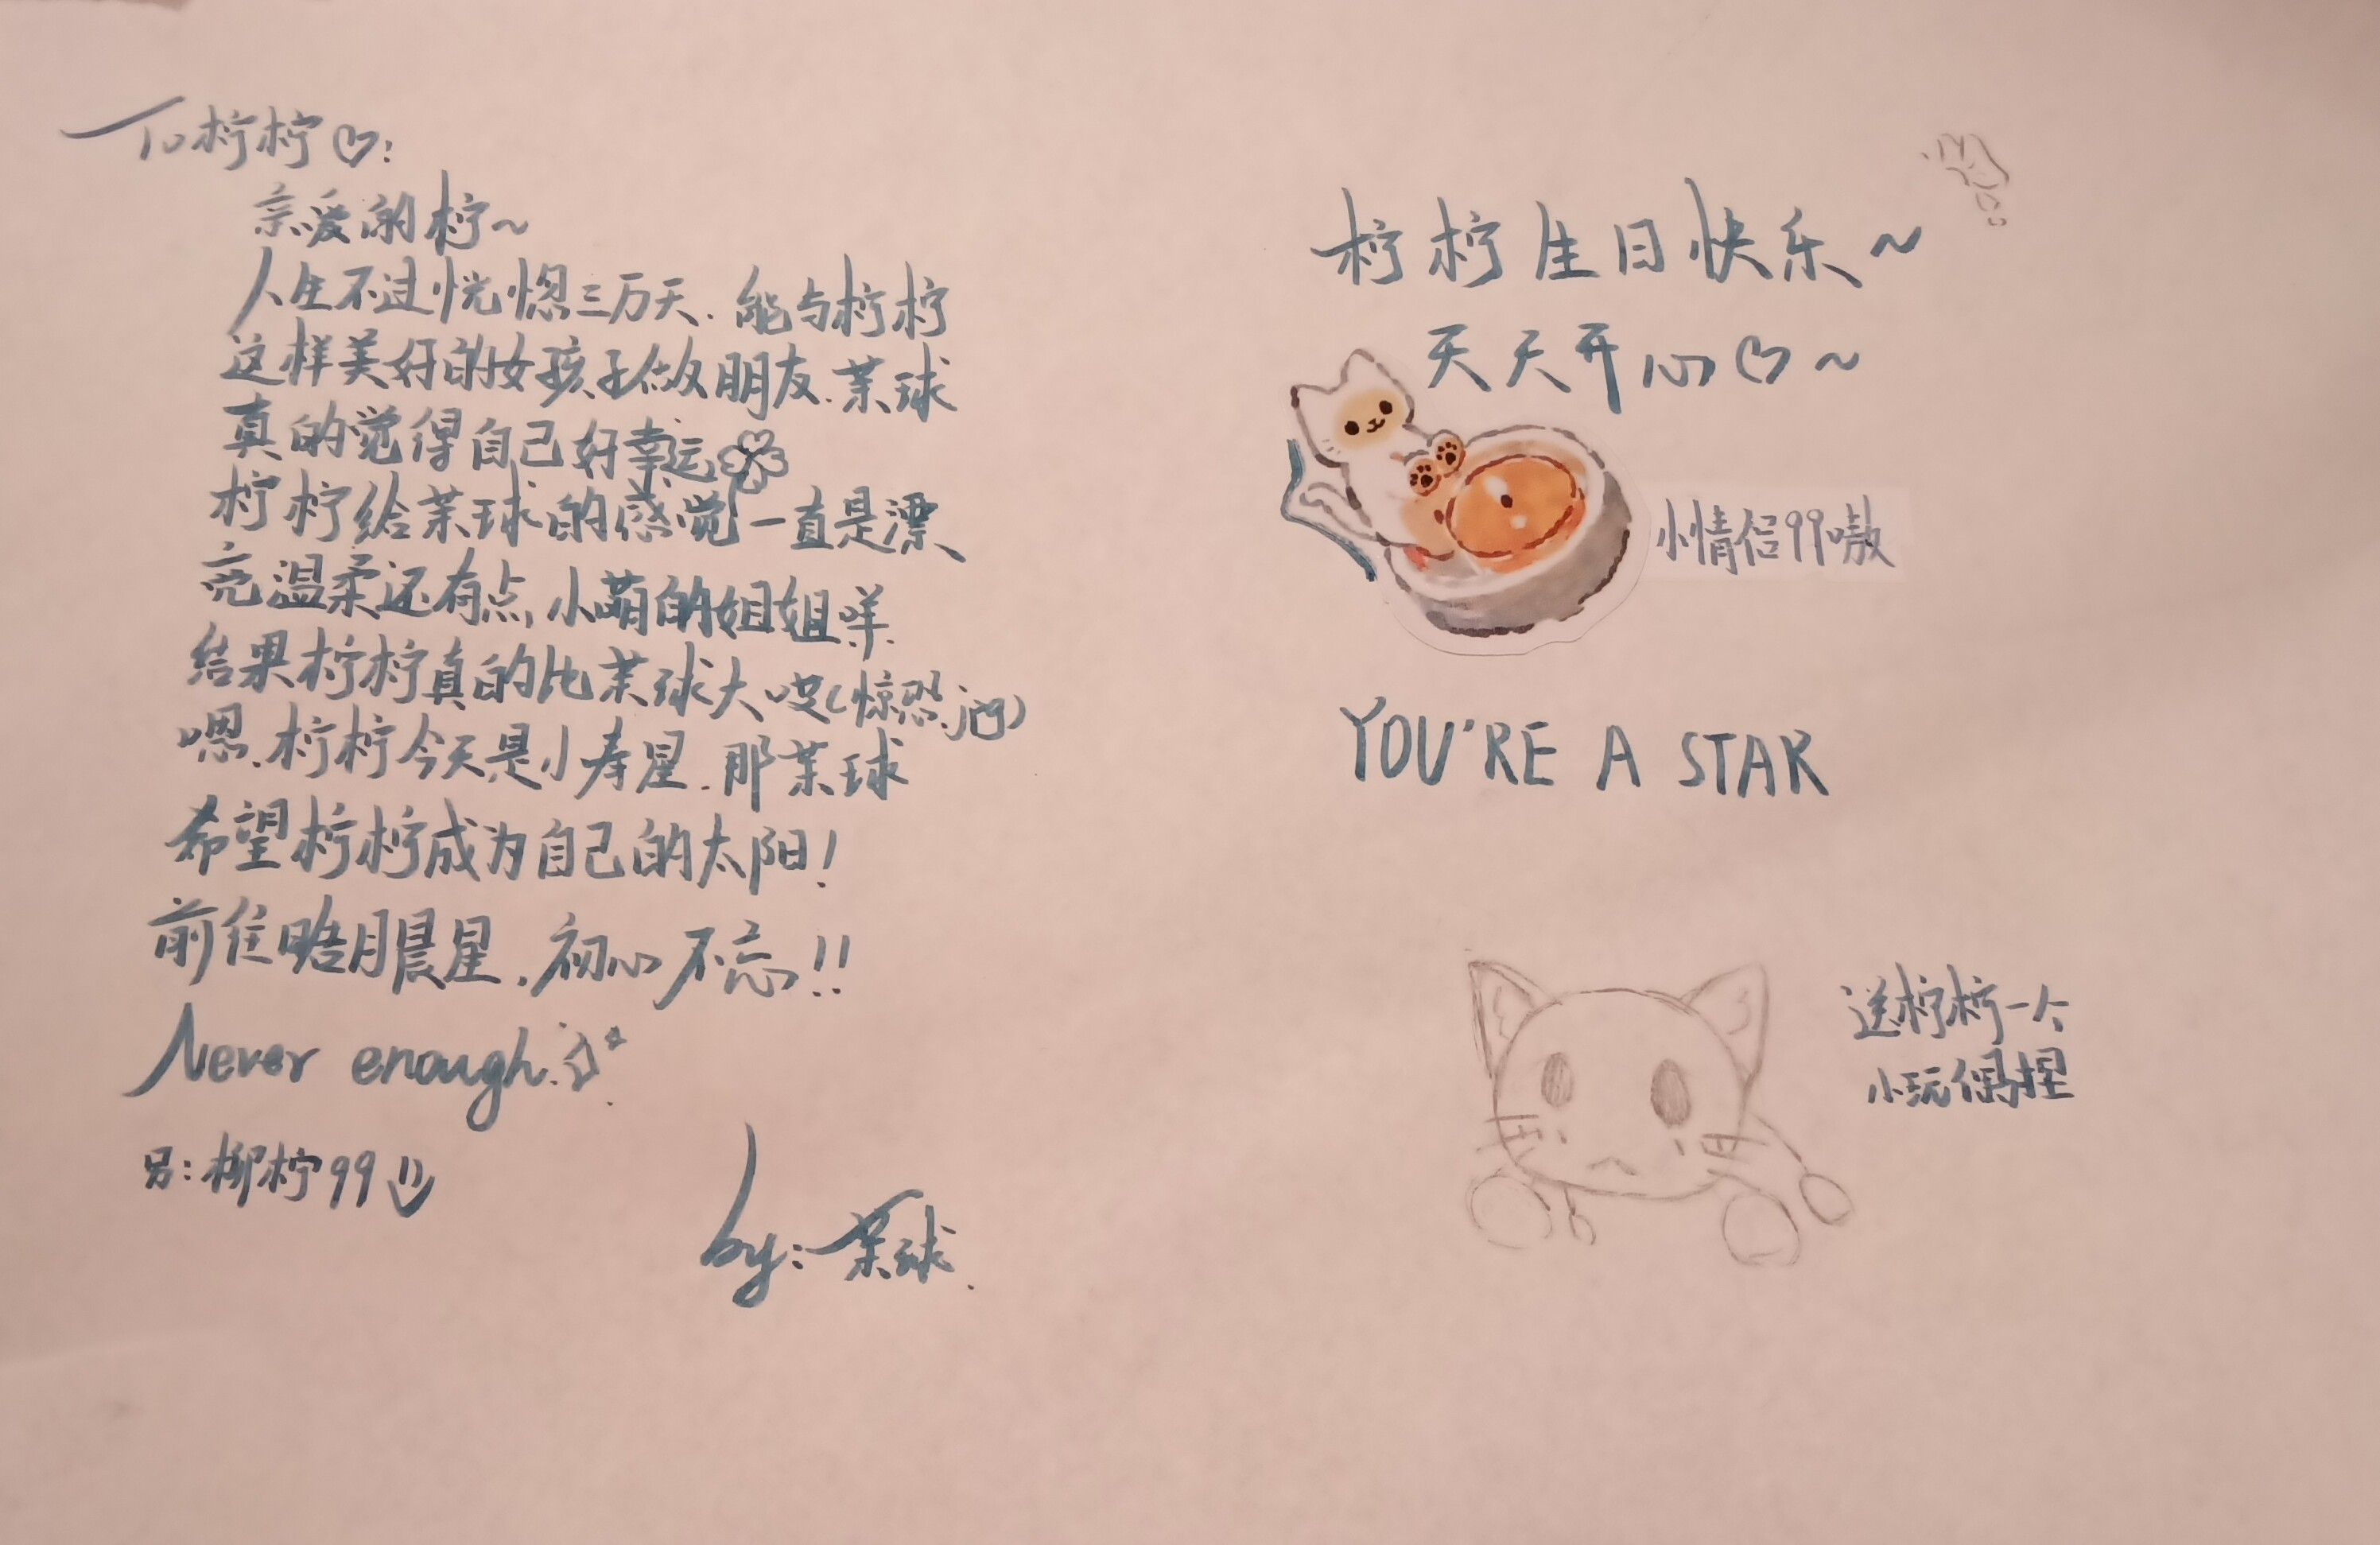 To 柠柠♡:
亲爱的柠~
人生不过恍惚三万天.能与柠柠
这样美好的女孩子做朋友.茉球
真的觉得自己好幸运
柠柠给茉球的感觉一直是漂
亮温柔还有点小萌的姐姐咩.
结果柠柠真的比茉球大哎(惊恐.jpg)
嗯.柠柠今天是小寿星.那茉球
希望柠柠成为自己的太阳!
前往晤月晨星.初心不忘!!
Never enough.
另:柳柠99
by:茉球.
柠柠生日快乐~
天天开心♡~
小情侣99嗷
YOU'RE A STAR
送柠柠一个
小玩偶捏